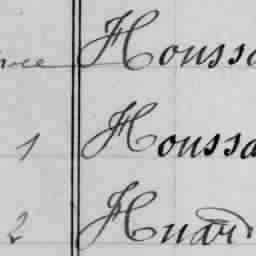 Houssa
1 Houssa
2 Huard